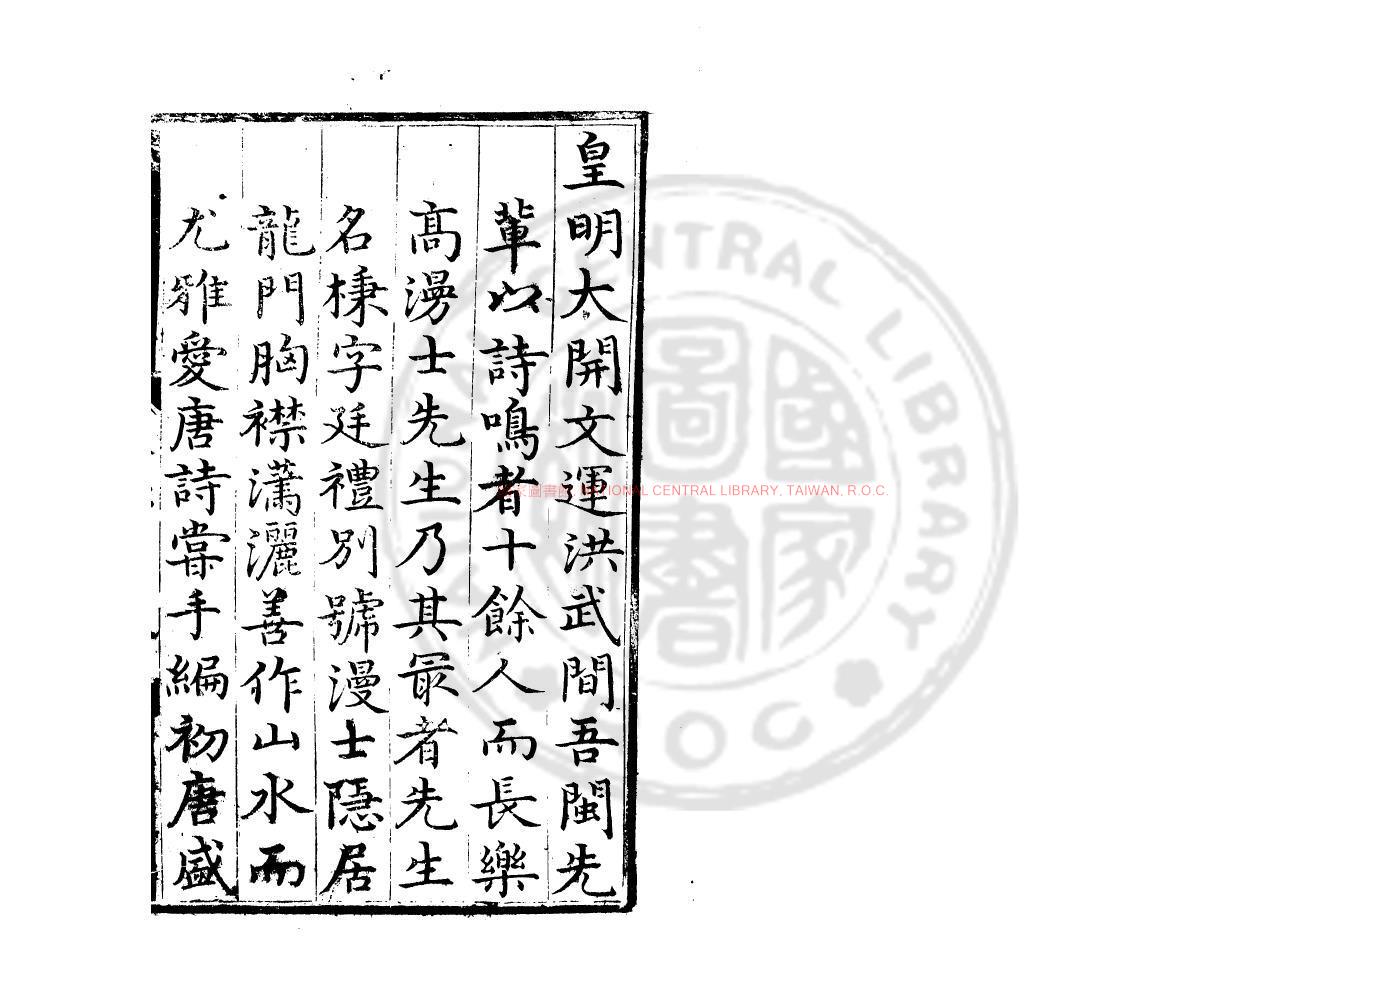 皇明大開文運洪武間吾閩先
輩以詩鳴者十餘人而長樂
高漫士先生乃其最者先生
名棅字廷禮別號漫士隱居
龍門胸襟瀟灑善作山水而
尤雅愛唐詩嘗手編初唐盛
國家圖書館, NATIONAL CENTRAL LIBRARY, TAIWAN, R.O.C.
NATIONAL CENTRAL LIBRARY
ROC
國家圖書